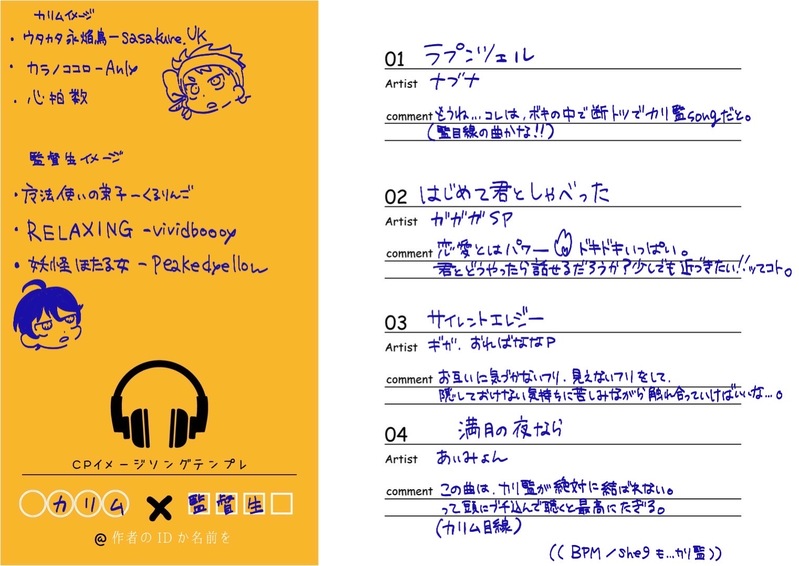 カリムイメージ
・ウタカタ永焔鳥－sasakure.UK
・カラノココロ－Anly
・心拍数
監督生イメージ
・魔法使いの弟子－くるりんご
・RELAXING－vividboooy
・妖怪ほたる女－Peakedyellow
CPイメージソングテンプレ
カリム×監督生
@作者のIDか名前を
01 ラプンツェル
Artist ナブナ
comment もうね…コレは、ボキの中で断トツでカリ監songだと。
(監目線の曲かな!!)
02 はじめて君としゃべった
Artist ガガガSP
comment 恋愛とはパワー ドキドキいっぱい。
君とどうやったら話せるだろうか?少しでも近づきたい!!ッてコト。
03 サイレントエレジー
Artist ギガ、おればななP
comment お互いに気づかないフリ、見えないフリをして、
隠しておけない気持ちに苦しみながら触れ合っていけばいいな…。
04 満月の夜なら
Artist あいみょん
comment この曲は、カリ監が絶対に結ばれない。
って頭にブチ込んで聴くと最高にたぎる。
(カリム目線)
((BPM/she9も…カリ監))